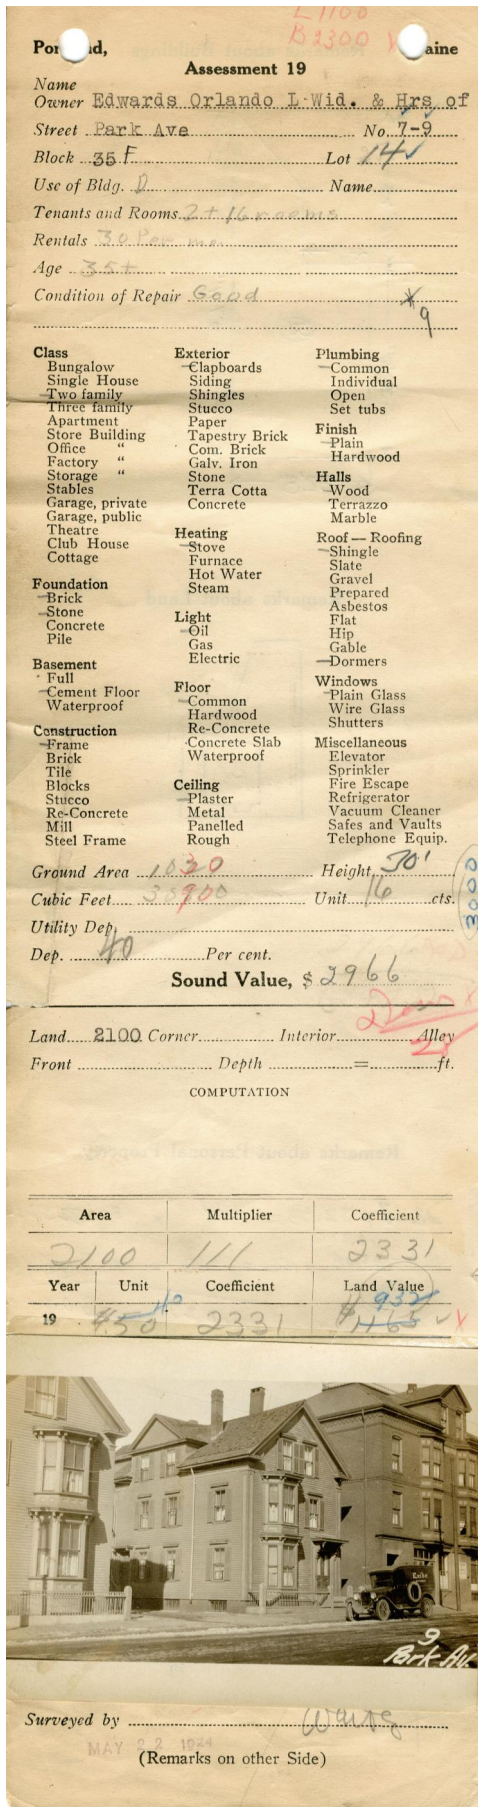 L 1100
B 2300
Portland, Maine
Assessment 19
Name
Owner Edwards Orlando L Wid. & Hrs of
Street Park Ave No. 7-9
Block 35 F Lot 14
Use of Bldg. D Name
Tenants and Rooms 2 + 16 rooms
Rentals 30 Per mo
Age 35+
Condition of Repair Good
9
Class
Bungalow
Single House
Two family
Three family
Apartment
Store Building
Office "
Factory "
Storage "
Stables
Garage, private
Garage, public
Theatre
Club House
Cottage
Foundation
Brick
Stone
Concrete
Pile
Basement
Full
Cement Floor
Waterproof
Construction
Frame
Brick
Tile
Blocks
Stucco
Re-Concrete
Mill
Steel Frame
Exterior
Clapboards
Siding
Shingles
Stucco
Paper
Tapestry Brick
Com. Brick
Galv. Iron
Stone
Terra Cotta
Concrete
Heating
Stove
Furnace
Hot Water
Steam
Light
Oil
Gas
Electric
Floor
Common
Hardwood
Re-Concrete
Concrete Slab
Waterproof
Ceiling
Plaster
Metal
Panelled
Rough
Plumbing
Common
Individual
Open
Set tubs
Finish
Plain
Hardwood
Halls
Wood
Terrazzo
Marble
Roof — Roofing
Shingle
Slate
Gravel
Prepared
Asbestos
Flat
Hip
Gable
Dormers
Windows
Plain Glass
Wire Glass
Shutters
Miscellaneous
Elevator
Sprinkler
Fire Escape
Refrigerator
Vacuum Cleaner
Safes and Vaults
Telephone Equip.
Ground Area 1030 Height 30'
Cubic Feet 30900 Unit 16 cts.
3000
Utility Dep.
Dep. 40 Per cent.
Sound Value, $ 2966
Land 2100 Corner Interior Alley
Front Depth = ft.
COMPUTATION
Area Multiplier Coefficient
2100 111 2331
Year Unit Coefficient Land Value
40 932
19 $50 2331 $1165
9
Park Av.
Surveyed by
MAY 22 1924
(Remarks on other Side)